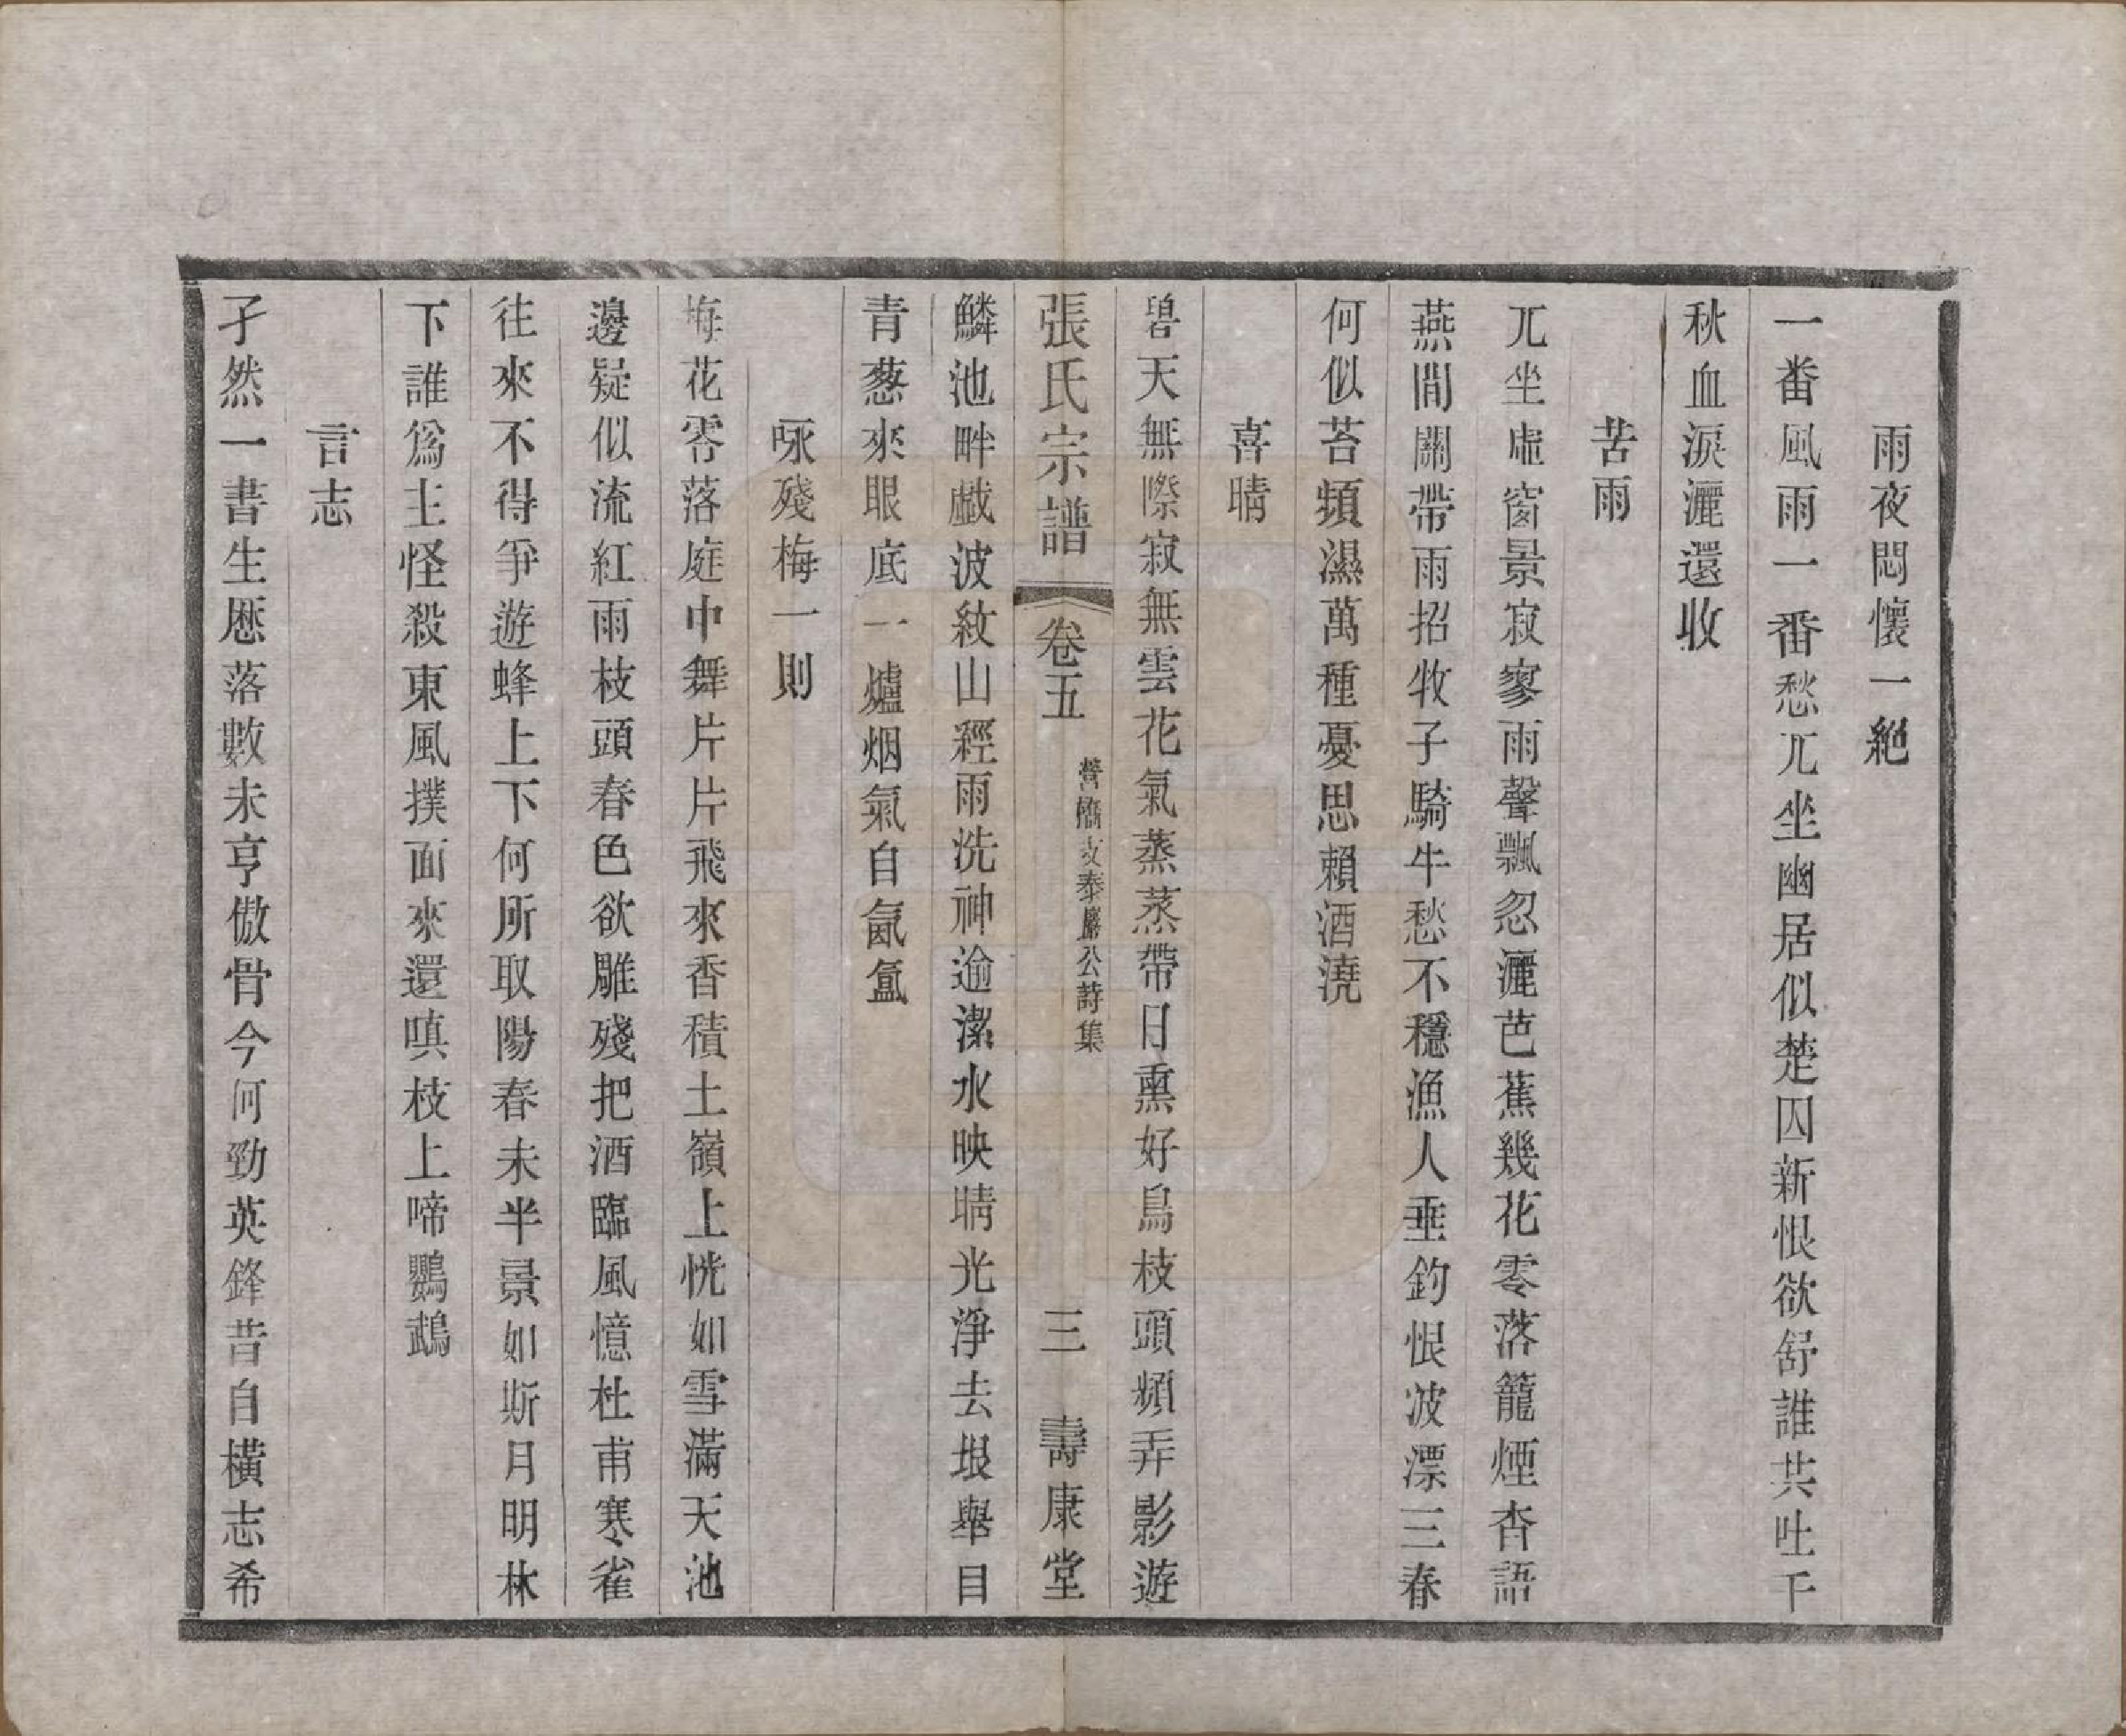 雨夜悶懷一絕
一番風雨一番愁兀坐幽居似楚囚新恨欲舒誰共吐千
秋血淚灑還收
苦雨
兀坐虛窗景寂寥雨聲飄忽灑芭蕉幾花零落籠煙杏語
燕間關帶雨招牧子騎牛愁不穩漁人垂釣恨波漂三春
何似苔頻濕萬種憂思賴酒澆
喜晴
碧天無際寂無雲花氣蒸蒸帶日熏好鳥枝頭頻弄影遊
張氏宗譜 卷五 營橋文泰麐公詩集 三 壽康堂
鱗池畔戲波紋山經雨洗神逾潔水映晴光淨去垠舉目
青葱來眼底一爐烟氣自氤氳
咏殘梅一則
梅花零落庭中舞片片飛來香積土嶺上恍如雪滿天池
邊疑似流紅雨枝頭春色欲雕殘把酒臨風憶杜甫寒雀
往來不得爭遊蜂上下何所取陽春未半景如斯月明林
下誰爲主怪殺東風撲面來還嗔枝上啼鸚鵡
言志
孑然一書生歷落數未亨傲骨今何勁英鋒昔自橫志希